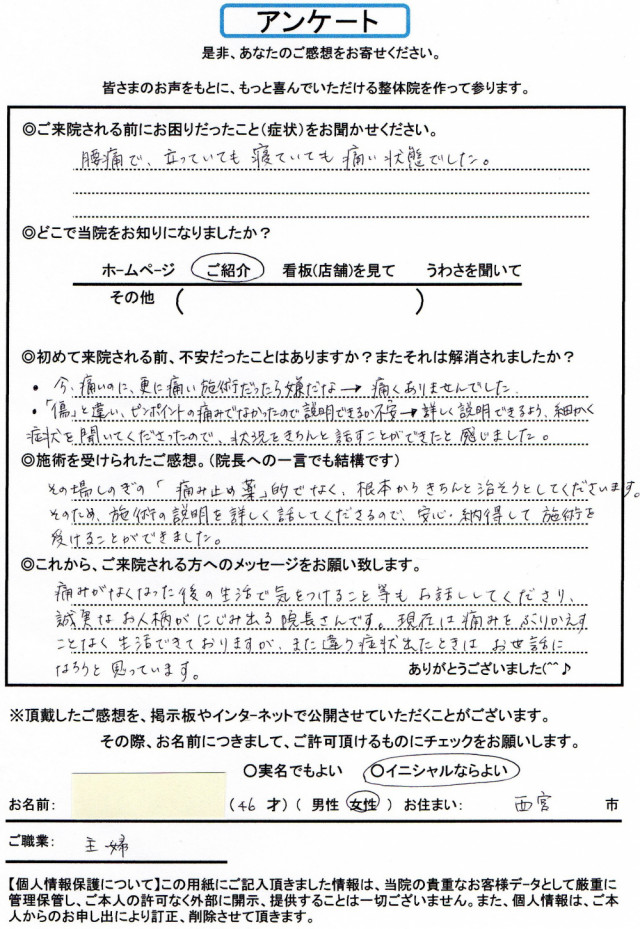 アンケート
是非、あなたのご感想をお寄せください。
皆さまのお声をもとに、もっと喜んでいただける整体院を作って参ります。
◎ご来院される前にお困りだったこと(症状)をお聞かせください。
腰痛で、立っていても 寝ていても 痛い状態でした。
◎どこで当院をお知りになりましたか?
ホームページ ご紹介 看板(店舗)を見て うわさを聞いて
その他 ( )
◎初めて来院される前、不安だったことはありますか?またそれは解消されましたか?
・今、痛いのに、更に痛い施術だったら嫌だな → 痛くありませんでした
・「傷」と違い、ピンポイントの痛みでなかったので説明できるか不安→詳しく説明できるよう、細かく
症状を聞いてくださったので、状況をきちんと話すことができたと感じました。
◎施術を受けられたご感想。(院長への一言でも結構です)
その場しのぎの「痛み止め薬」的でなく、根本からきちんと治そうとしてくださいます。
そのため、施術の説明を詳しく話してくださるので、安心・納得して施術を
受けることができました。
◎これから、ご来院される方へのメッセージをお願い致します。
痛みがなくなった後の生活で気をつけること等もお話ししてくださり、
誠実なお人柄がにじみ出る院長さんです。現在は痛みをぶりかえす
ことなく生活できておりますが、また違う症状出たときはお世話に
なろうと思っています。 ありがとうございました(^^♪
※頂戴したご感想を、掲示板やインターネットで公開させていただくことがございます。
その際、お名前につきまして、ご許可頂けるものにチェックをお願いします。
○実名でもよい ○イニシャルならよい
お名前: (46 才) ( 男性 女性 ) お住まい: 西宮 市
ご職業: 主婦
【個人情報保護について】この用紙にご記入頂きました情報は、当院の貴重なお客様データとして厳重に
管理保管し、ご本人の許可なく外部に開示、提供することは一切ございません。また、個人情報は、ご本
人からのお申し出により訂正、削除させて頂きます。